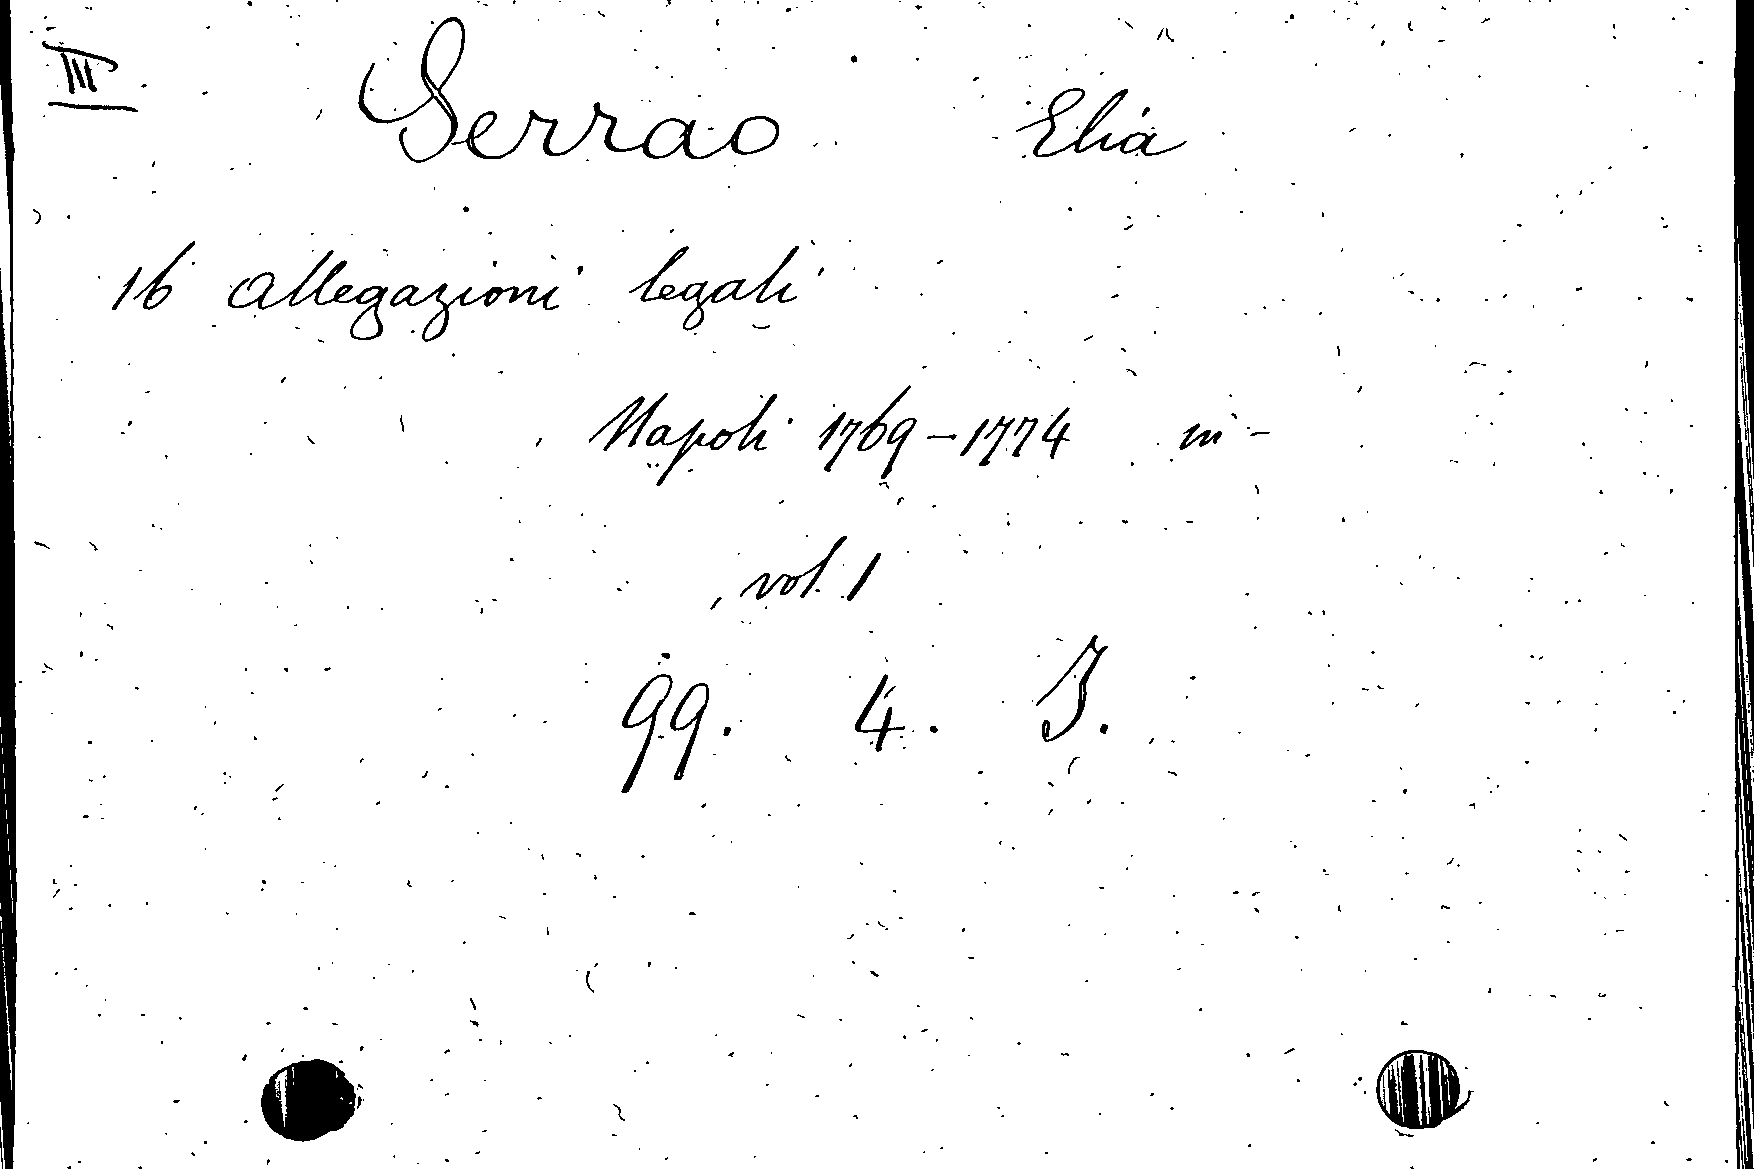 III
Serrao Elia
16 allegazioni legali
Napoli 1769-1774 in -
vol. 1
99. 4. I.